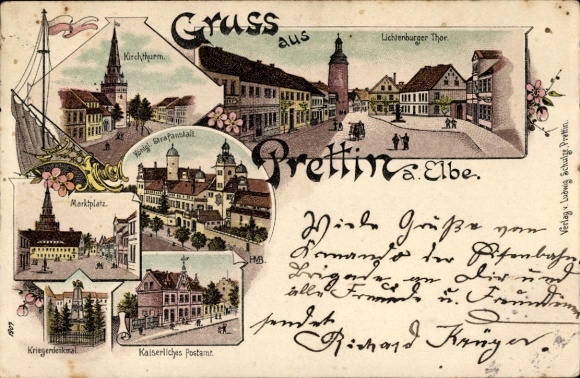 Gruss
aus
Lichtenburger Thor.
Kirchthurm.
Königl. Strafanstalt.
Prettin a. Elbe.
Marktplatz.
HMB.
Kriegerdenkmal.
Kaiserliches Postamt.
Verlag v. Ludwig Schulze, Prettin.
Viele Grüße vom
Komando der Eisenbahn
Brigade an Dir und
alle Freunde u. Freundinnen
sendet
Richard Krüger